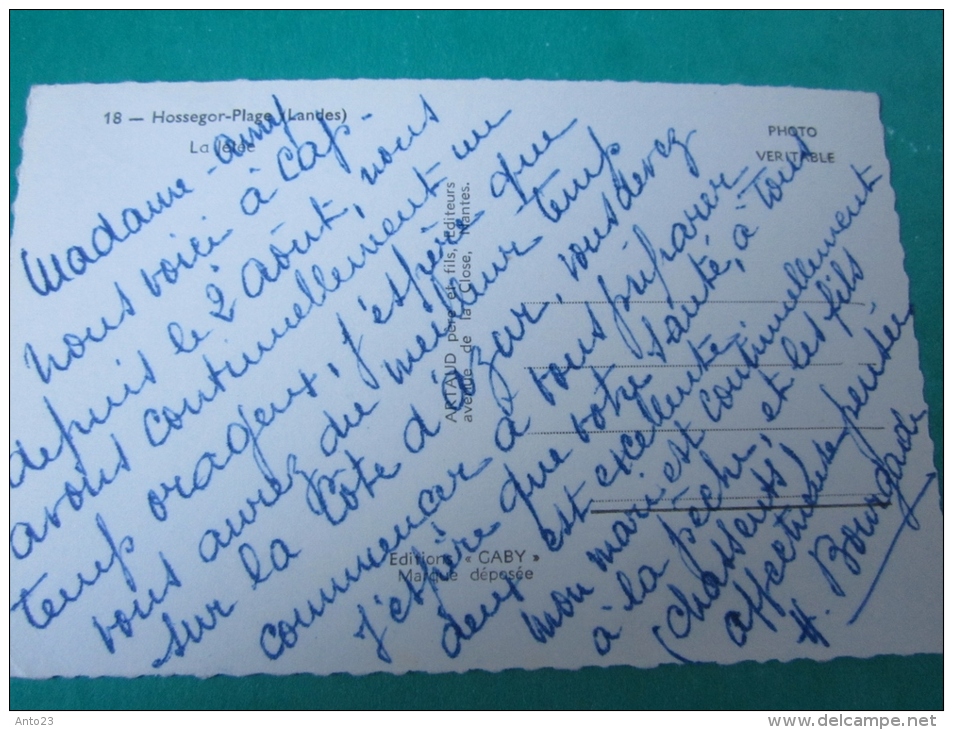 18 — Hossegor-Plage (Landes)
La Jetée
PHOTO
VERITABLE
ARTAUD père et fils, Editeurs
avenue de la Close, Nantes.
Editions « GABY »
Marque déposée
Madame
nous voici à Cap-
depuis le 2 août, nous
avons continuellement un
temps orageux, j'espère que
vous aurez du meilleur temps
sur la Côte d'Azur, vous devez
commencer à vous préparer
j'espère que votre santé, à tous
deux est excellente
mon mari est continuellement
à la pêche, et les fils
(chassents)
affectueuse pensée
H. Bourgade
Anto23
www.delcampe.net